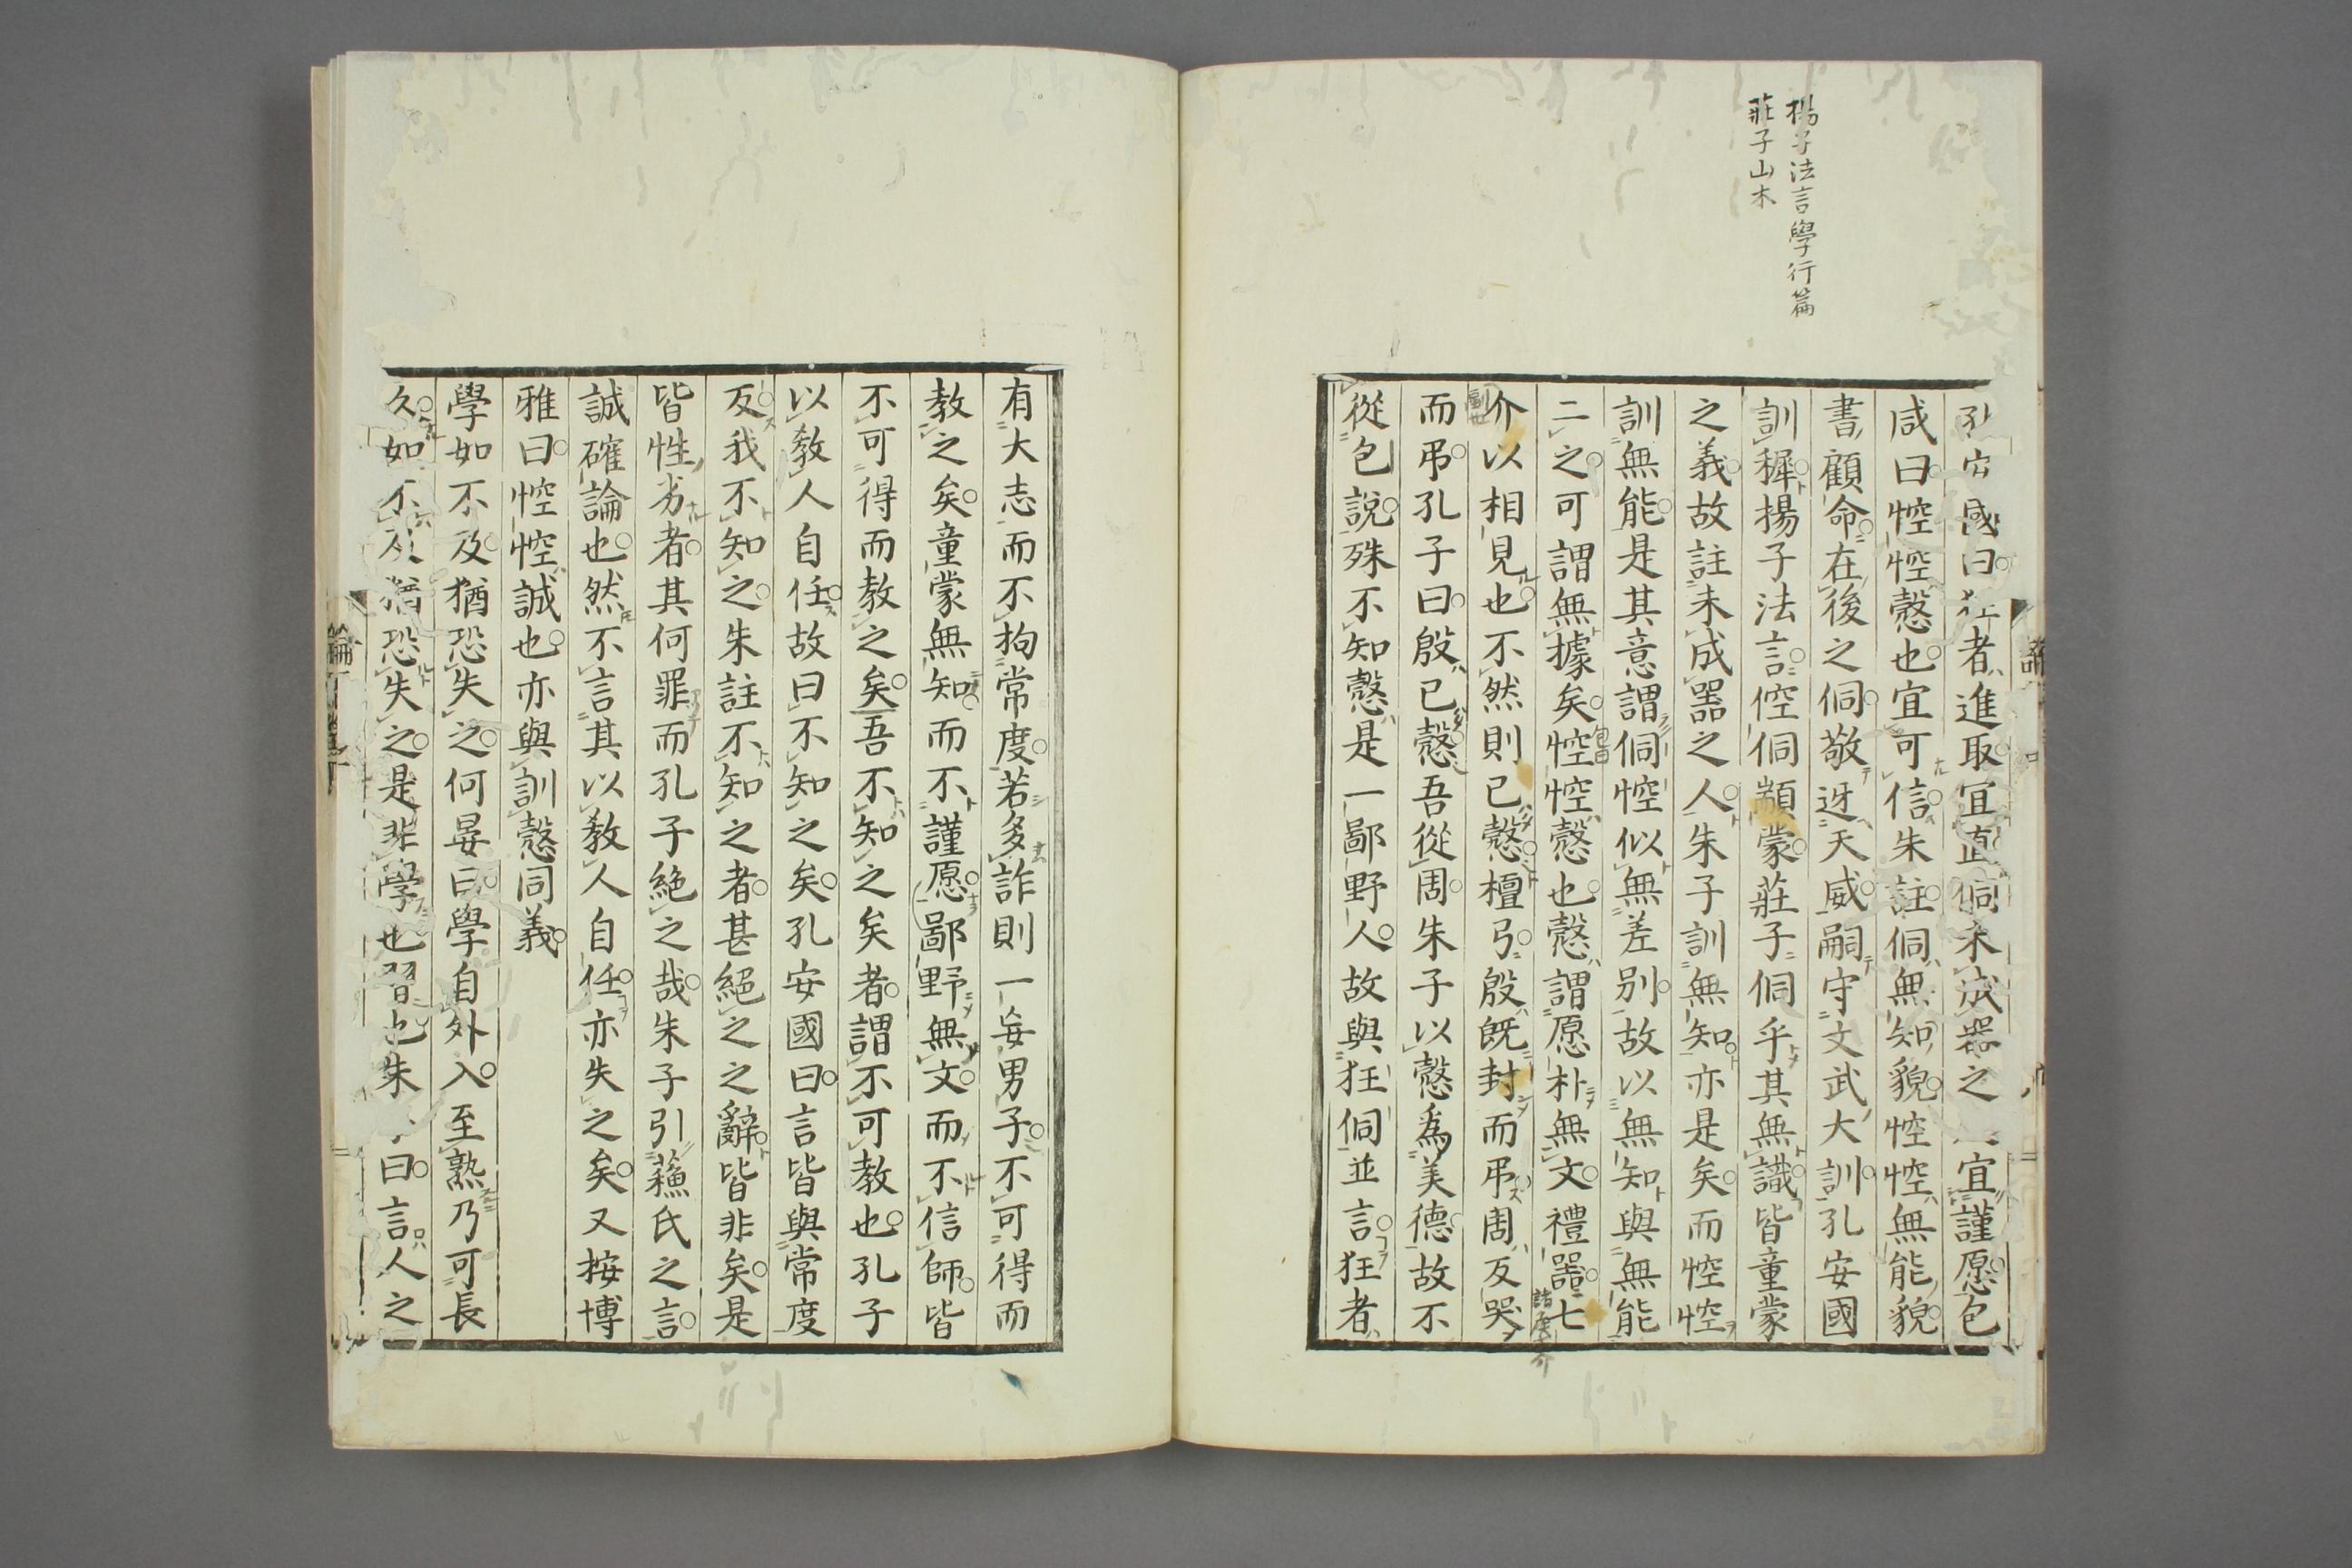 揚子法言學行篇
莊子山木
孔安國曰狂者進取宜直侗未成器之宜謹愿包
咸曰悾悾愨也宜可信朱註侗無知貌悾悾無能貌
書顧命在後之侗敬迓天威嗣守文武大訓孔安國
訓穉揚子法言倥侗顓蒙莊子侗乎其無識皆童蒙
之義故註未成器之人朱子訓無知亦是矣而悾悾
訓無能是其意謂侗悾似無差別故以無知與無能
二之可謂無據矣悾悾愨也愨謂愿朴無文禮器七
介以相見也不然則已愨檀弓殷既封而弔周反哭
而弔孔子曰殷已愨吾從周朱子以愨爲美德故不
從包說殊不知愨是一鄙野人故與狂侗並言狂者
有大志而不拘常度若多詐則一妄男子不可得而
教之矣童蒙無知而不謹愿鄙野無文而不信師皆
不可得而教之矣吾不知之矣者謂不可教也孔子
以教人自任故曰不知之矣孔安國曰言皆與常度
反我不知之朱註不知之者甚絕之之辭皆非矣是
皆性劣者其何罪而孔子絕之哉朱子引蘓氏之言
誠確論也然不言其以教人自任亦失之矣又按博
雅曰悾悾誠也亦與訓愨同義
學如不及猶恐失之何晏曰學自外入至熟乃可長
久如不及猶恐失之是非學也習也朱曰言人之